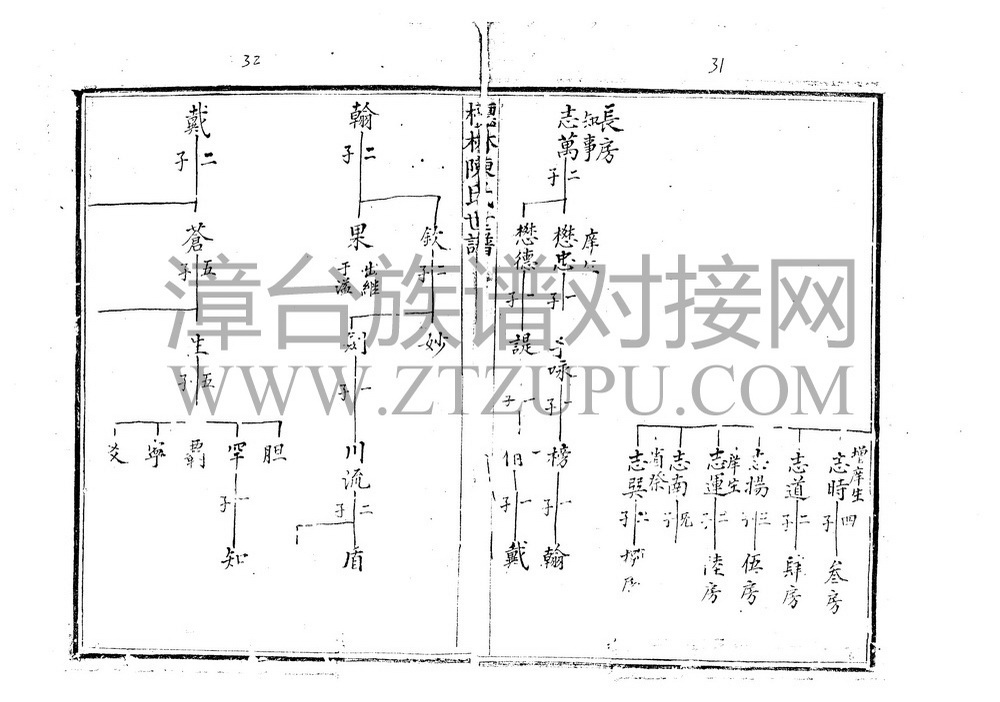 31
長房
知事
志萬
二子
庠
懋忠
一子
懋德
一子
詠
一子
諟
一子
榜
一子
翰
戴
增庠生
志時
四子
叁房
志道
二子
肆房
志揚
三子
伍房
庠生
志運
二子
陸房
志南
志巽
二子
陳氏世譜
32
翰
二子
欽
二子
果
出繼
妙
一子
川流
二子
盾
戴
二子
蒼
五子
生
五子
胆
罕
一子
知
寧
漳台族谱对接网
WWW.ZTZUPU.COM